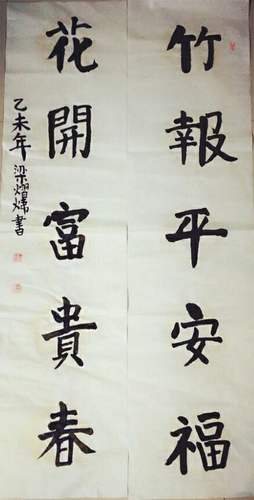 竹報平安福
花開富貴春
乙未年梁熠焬書